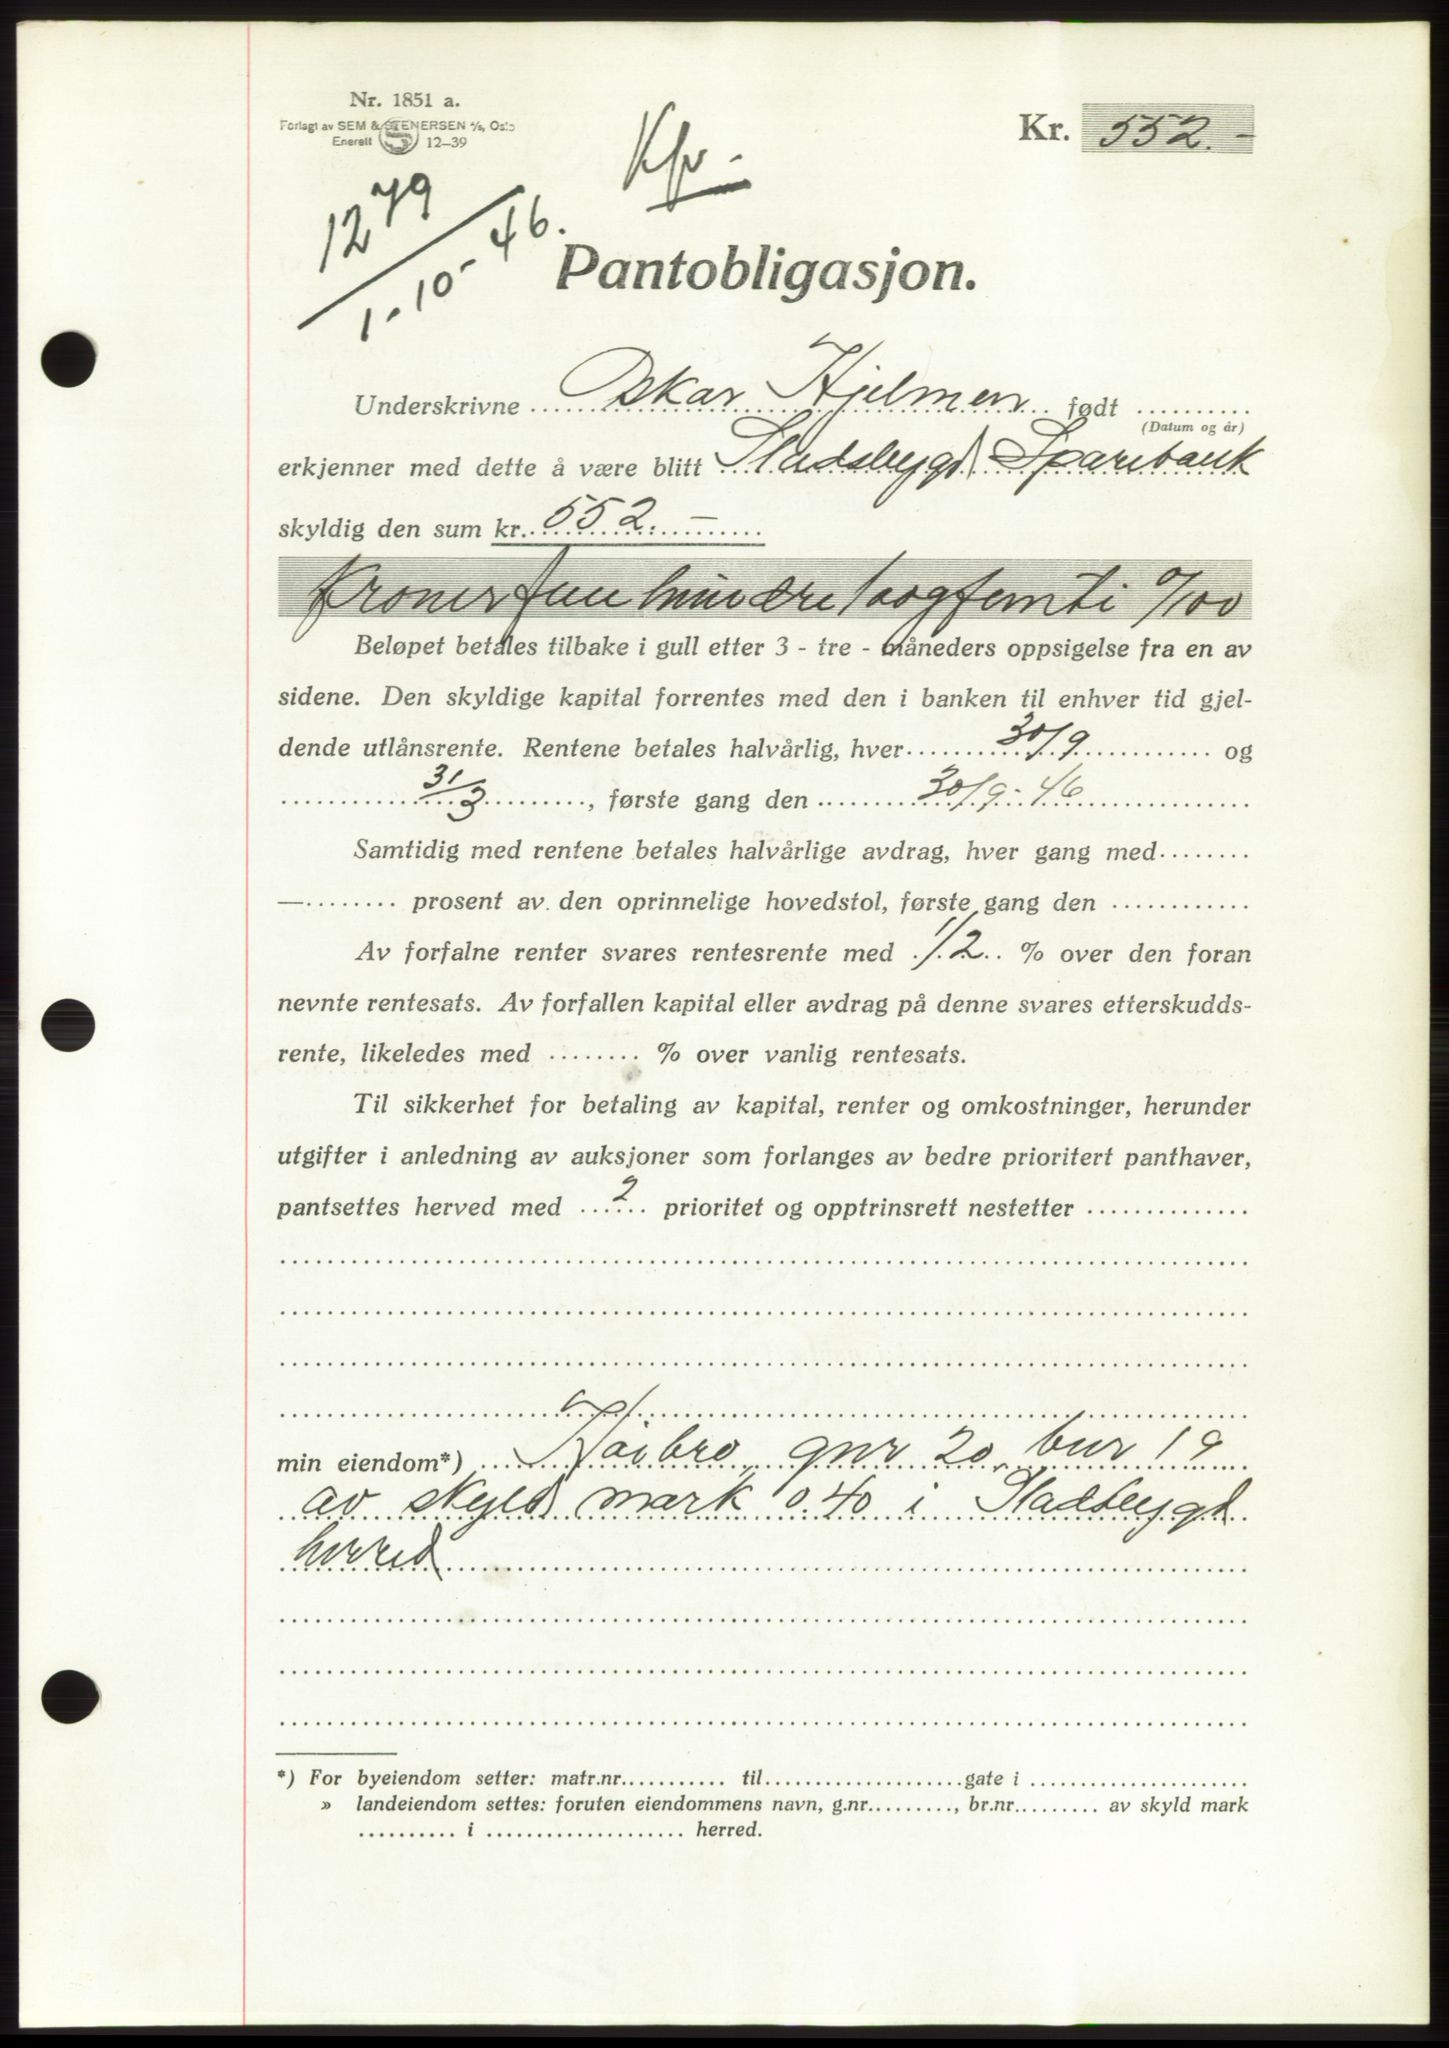 Nr. 1851 a.
Forlagt av SEM & STENERSEN A/S, Oslo
Enerett 12—39
Kr. 552.—
1279
1-10-46.
Pantobligasjon.
Underskrivne Oskar Hjelmen født
(Datum og år)
erkjenner med dette å være blitt Stadsbygd Sparebank
skyldig den sum kr. 552.—
kroner fem hundre toogfemti 0/100
Beløpet betales tilbake i gull etter 3 - tre - måneders oppsigelse fra en av
sidene. Den skyldige kapital forrentes med den i banken til enhver tid gjel-
dende utlånsrente. Rentene betales halvårlig, hver 30/9 og
31/3, første gang den 30/9-46
Samtidig med rentene betales halvårlige avdrag, hver gang med
— prosent av den oprinnelige hovedstol, første gang den
Av forfalne renter svares rentesrente med 1/2 % over den foran
nevnte rentesats. Av forfallen kapital eller avdrag på denne svares etterskudds-
rente, likeledes med % over vanlig rentesats.
Til sikkerhet for betaling av kapital, renter og omkostninger, herunder
utgifter i anledning av auksjoner som forlanges av bedre prioritert panthaver,
pantsettes herved med 2 prioritet og opptrinsrett nestetter
min eiendom*) gnr 20, bnr 19
av skyld mark 0.40 i Stadsbygd
herred
*) For byeiendom setter: matr.nr. til gate i
» landeiendom settes: foruten eiendommens navn, g.nr., br.nr. av skyld mark
i herred.